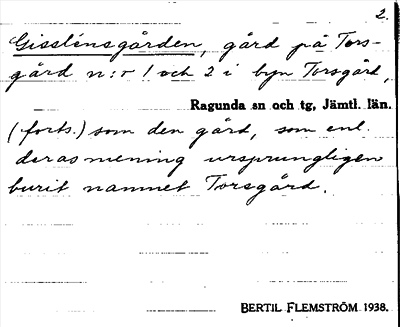 2.
Gisslénsgården, gård på Tors-
gård n:r 1 och 2 i byn Torsgård,
Ragunda sn och tg, Jämtl. län.
(forts.) som den gård, som enl.
deras mening ursprungligen
burit namnet Torsgård.
BERTIL FLEMSTRÖM 1938.